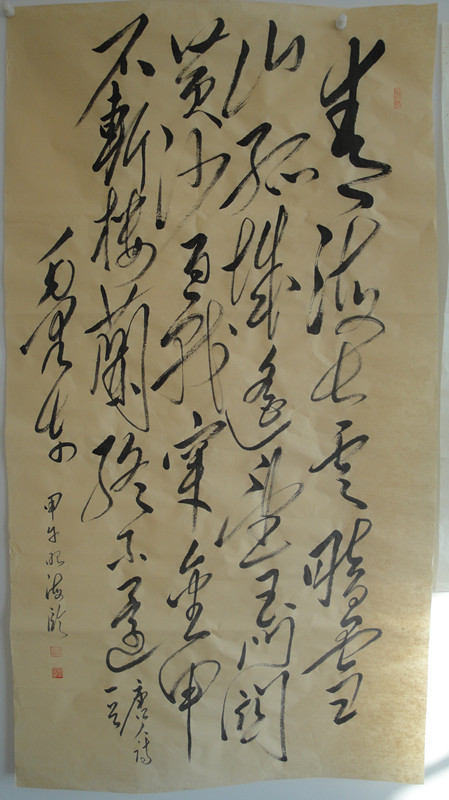 青海长云暗雪
山孤城遥望玉门関
黄沙百战穿金甲
不斬楼蘭终不還
唐人诗
一首
甲午